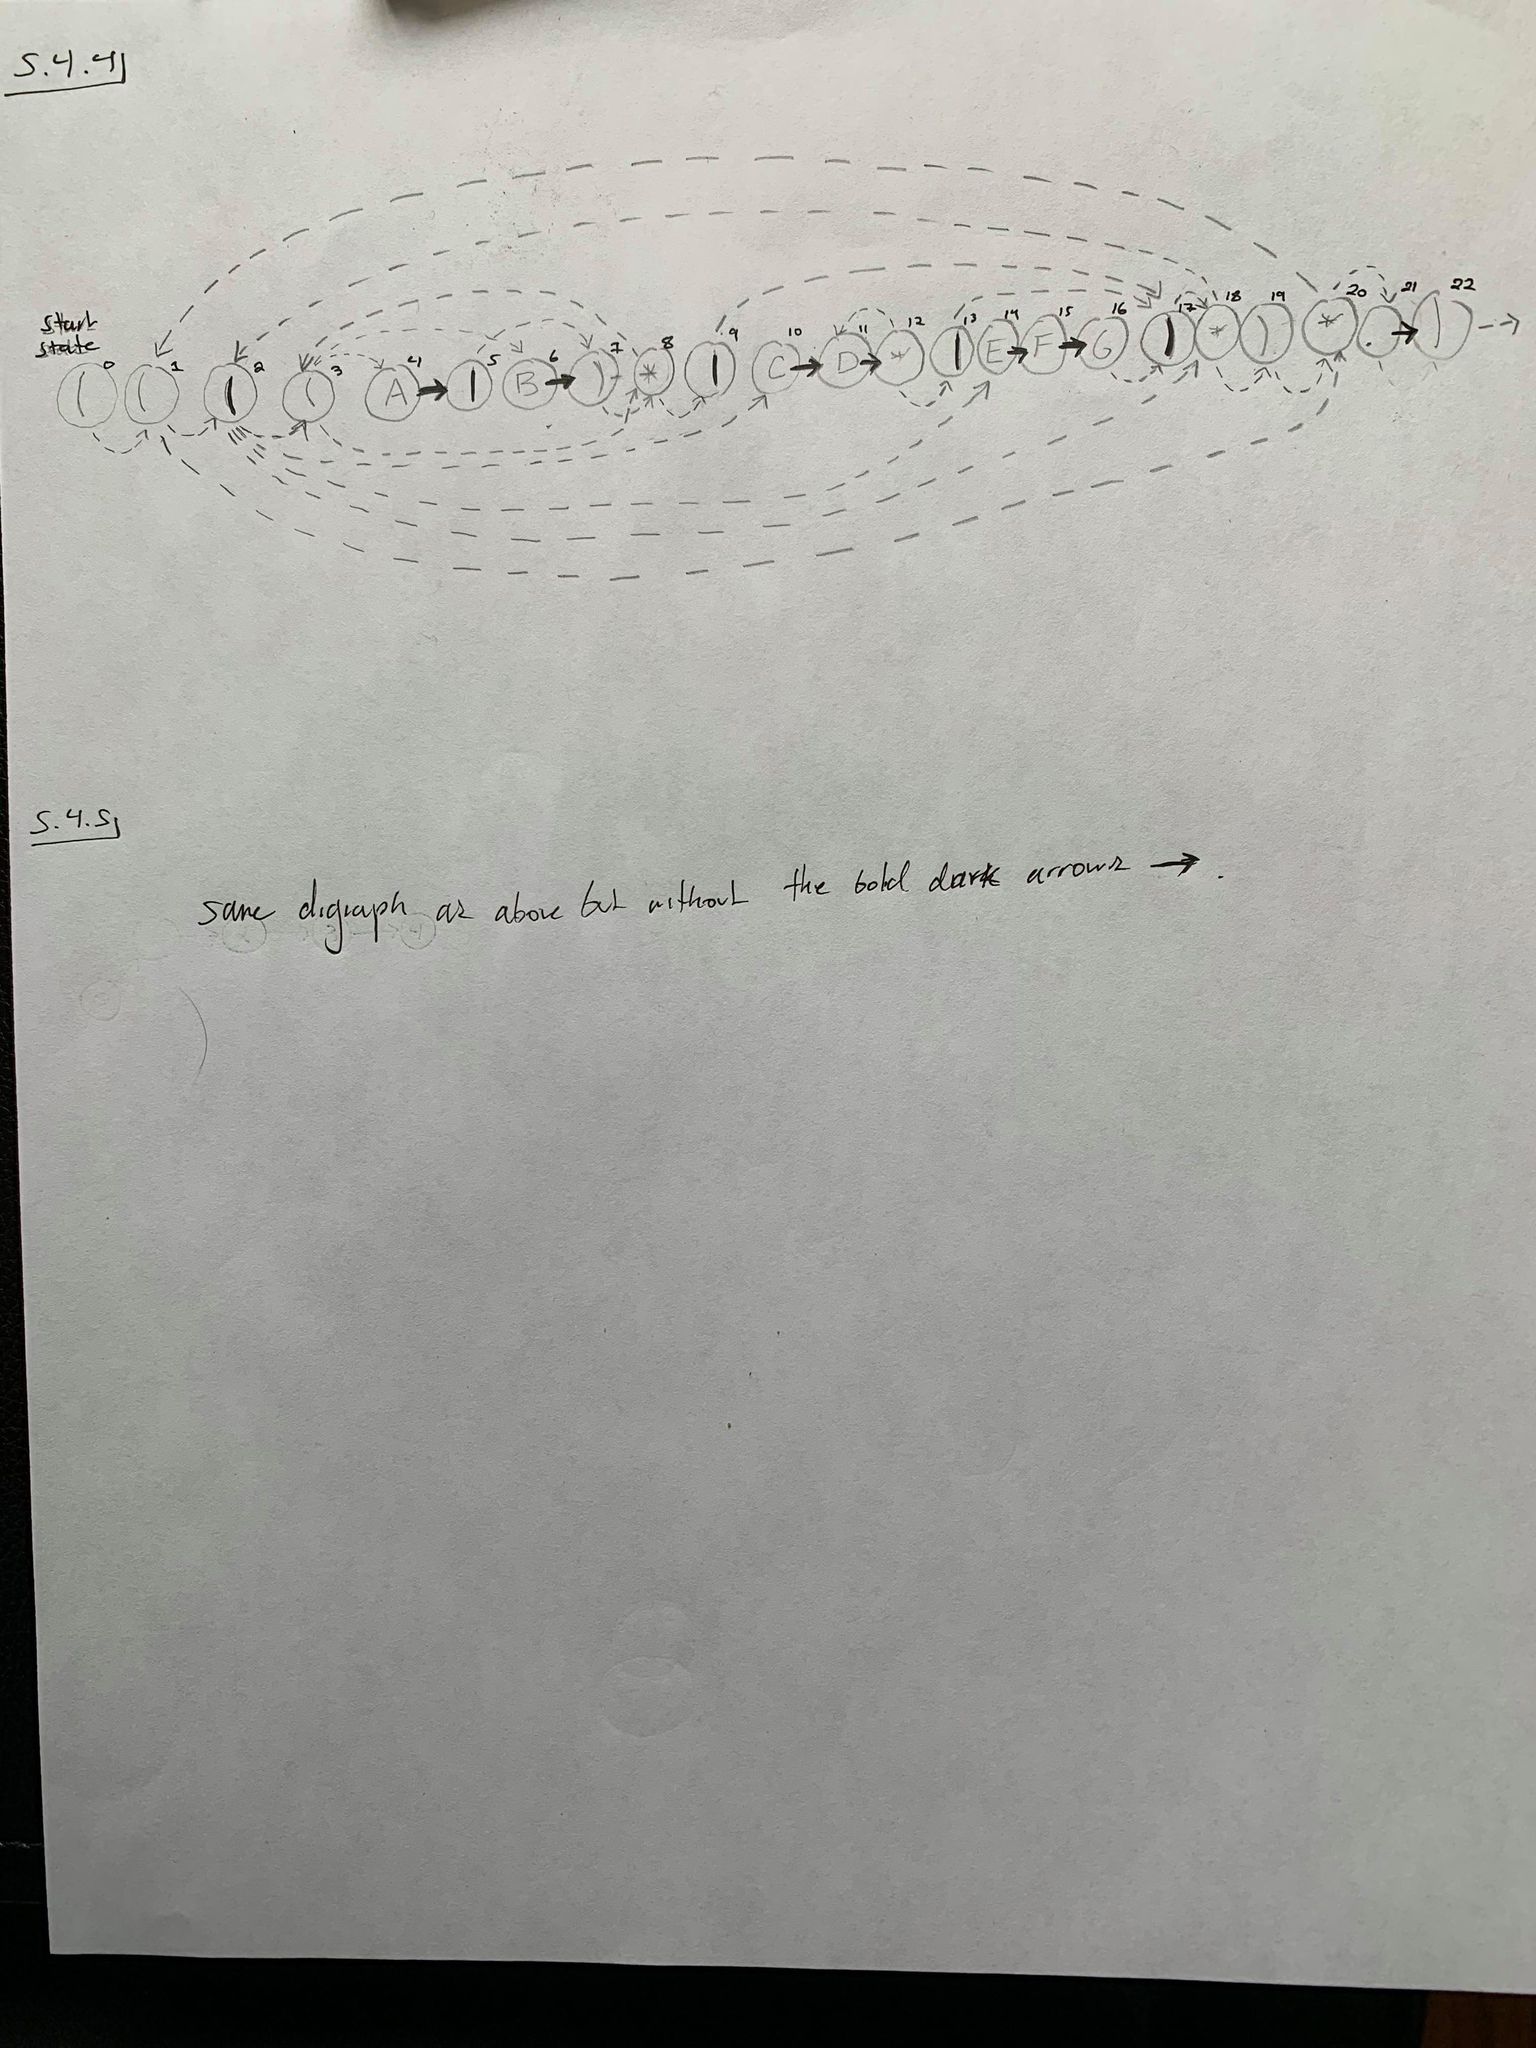 5.4.4)
start
state
0 1 2 3 4 5 6 7 8 9 10 11 12 13 14 15 16 17 18 19 20 21 22
( ( | ( A | B ) * | C D * | E F G | * ) * . )
5.4.5)
same digraph as above but without the bold dark arrows → .